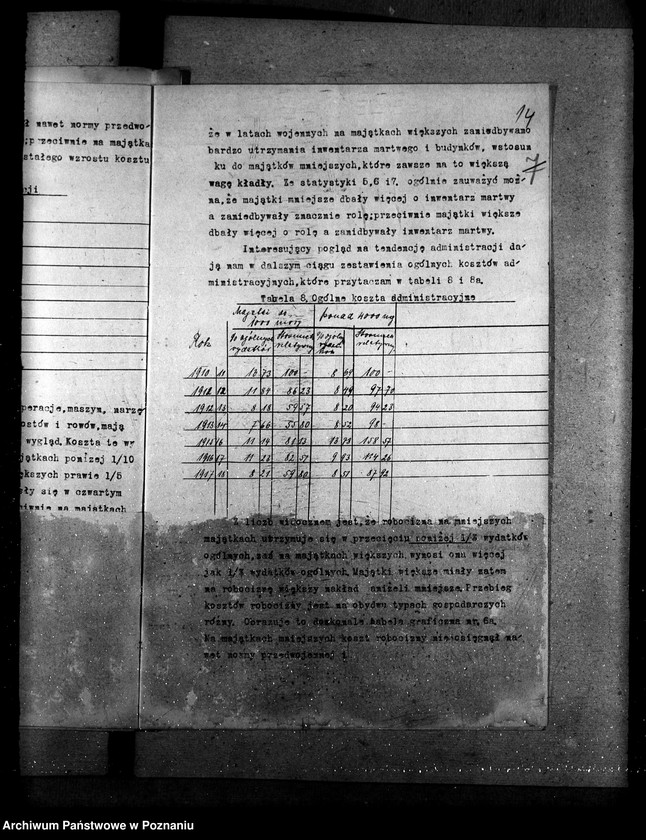 ł nawet normy przedwo-
;przeciwnie na majątka
stałego wzrostu kosztu
ji
peracje,maszyn, narzę
ostów i rowów,mają
wygląd.Koszta te wy
jątkach poniżej 1/10
kszych prawie 1/5
ły się w czwartym
iwnie na majątkach
14
7
że w latach wojennych na majątkach większych zaniedbywano
bardzo utrzymania inwentarza martwego i budynków, wstosun
ku do majątków mniejszych,które zawsze na to większą
wagę kładły. Ze statystyki 5,6 i7. ogólnie zauważyć moż-
na,że majątki mniejsze dbały więcej o inwentarz martwy
a zaniedbywały znacznie rolę;przeciwnie majątki większe
dbały więcej o rolę a zanidbywały inwentarz martwy.
Interesujący pogląd na tendencję administracji da-
ją nam w dalszym ciągu zestawienia ogólnych kosztów ad-
ministracyjnych,które przytaczam w tabeli 8 i 8a.
Tabela 8. Ogólne koszta administracyjne
Majątki do 4000 mórg ponad 4000 mg
Rok % ogólnych wydatków Stosunek relatywny % ogóln. wydatków Stosunek relatywny
1910 11 13 73 100 - 8 69 100 -
1911 12 11 84 86 23 8 49 97 70
1912 13 8 18 59 57 8 20 94 23
1913 14 7 66 55 80 8 52 98 -
1915 16 11 14 81 13 13 78 158 57
1916 17 11 23 82 57 9 93 114 26
1917 18 8 21 59 80 8 51 97 92
Z liczb widocznem jest,że robocizna na mniejszych
majątkach utrzymuje się w przecięciu poniżej 1/3 wydatków
ogólnych,zaś na majątkach większych wynosi onu więcej
jak 1/3 wydatków ogólnych.Majątki większe miały zatem
na robociznę większy nakład aniżeli mniejsze.Przebieg
kosztów robocizny jest na obydwu typach gospodarczych
różny. Obrazuje to doskonale tabela graficzna nr. 6a.
Na majątkach mniejszych koszt robocizny nieosięgnął na-
wet normy przedwojennej i
Archiwum Państwowe w Poznaniu